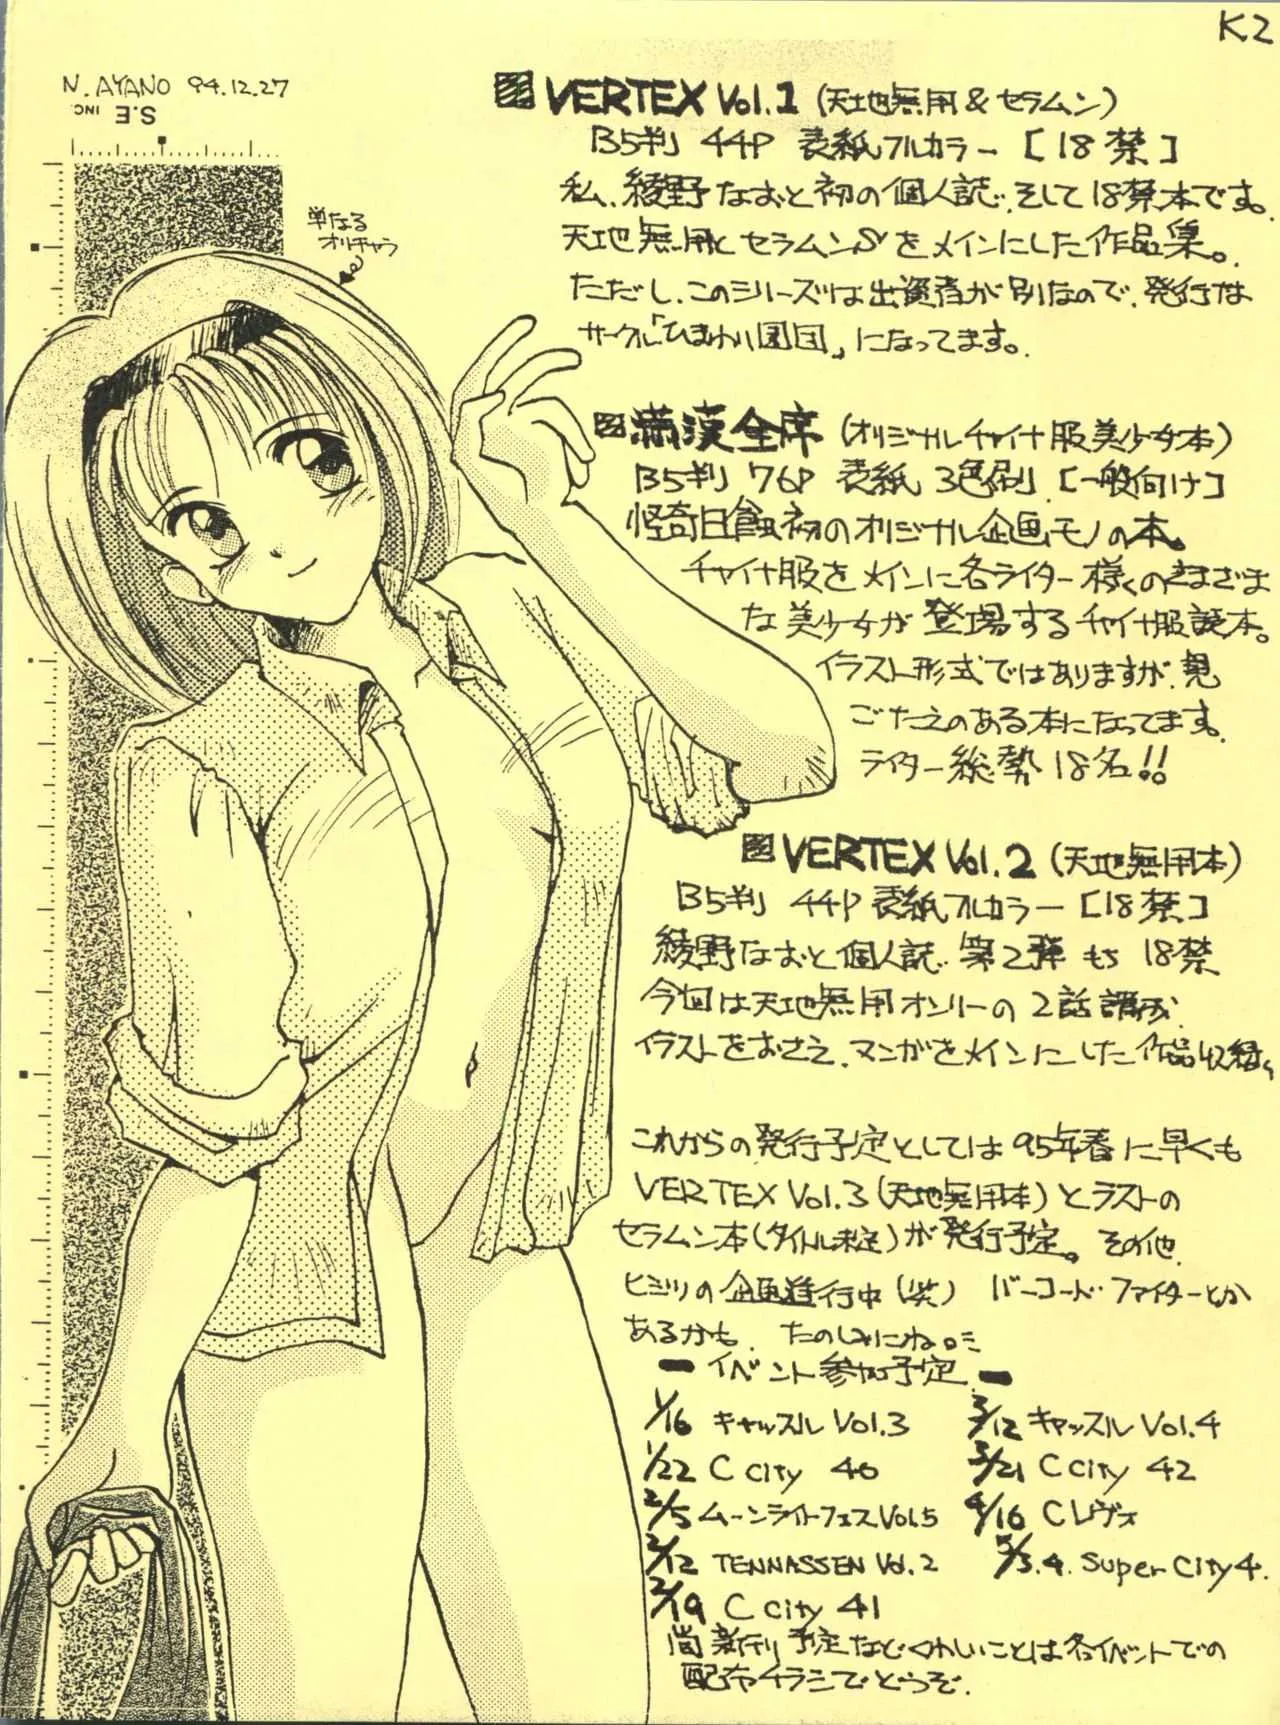 K2
N. AYANO 94.12.27
S.E INC.
単なる
オリキャラ
VERTEX Vol.1 (天地無用&セラムン)
B5判 44P 表紙フルカラー [18禁]
私、綾野なおと初の個人誌、そして18禁本です。
天地無用とセラムンSをメインにした作品集。
ただし、このシリーズは出資者が別なので、発行は
サークル「ひまわり園団」になってます。
満漢全席 (オリジナルチャイナ服美少女本)
B5判 76P 表紙3色刷 [一般向け]
怪奇日蝕初のオリジナル企画モノの本。
チャイナ服をメインに各ライター様々のさまざま
な美少女が登場するチャイナ服読本。
イラスト形式ではありますが、見
ごたえのある本になってます。
ライター総勢18名!!
VERTEX Vol.2 (天地無用本)
B5判 44P 表紙フルカラー [18禁]
綾野なおと個人誌 第2弾 もち 18禁
今回は天地無用オンリーの2話構成
イラストをおさえ、マンガをメインにした作品収録。
これからの発行予定としては95年春に早くも
VERTEX Vol.3(天地無用本)とラストの
セラムン本(タイトル未定)が発行予定。その他
ヒミツの企画進行中(笑) バーコード・ファイターとか
あるかも。たのしみにね。
ー イベント参加予定 ー
1/16 キャッスル Vol.3
3/12 キャッスル Vol.4
1/22 C City 40
3/21 C City 42
2/5 ムーンライトフェス Vol.5
4/16 C レヴォ
2/12 TENNASSEN Vol.2
5/3.4. Super City 4.
2/19 C City 41
尚新刊予定などくわしいことは各イベントでの
配布チラシでどうぞ。